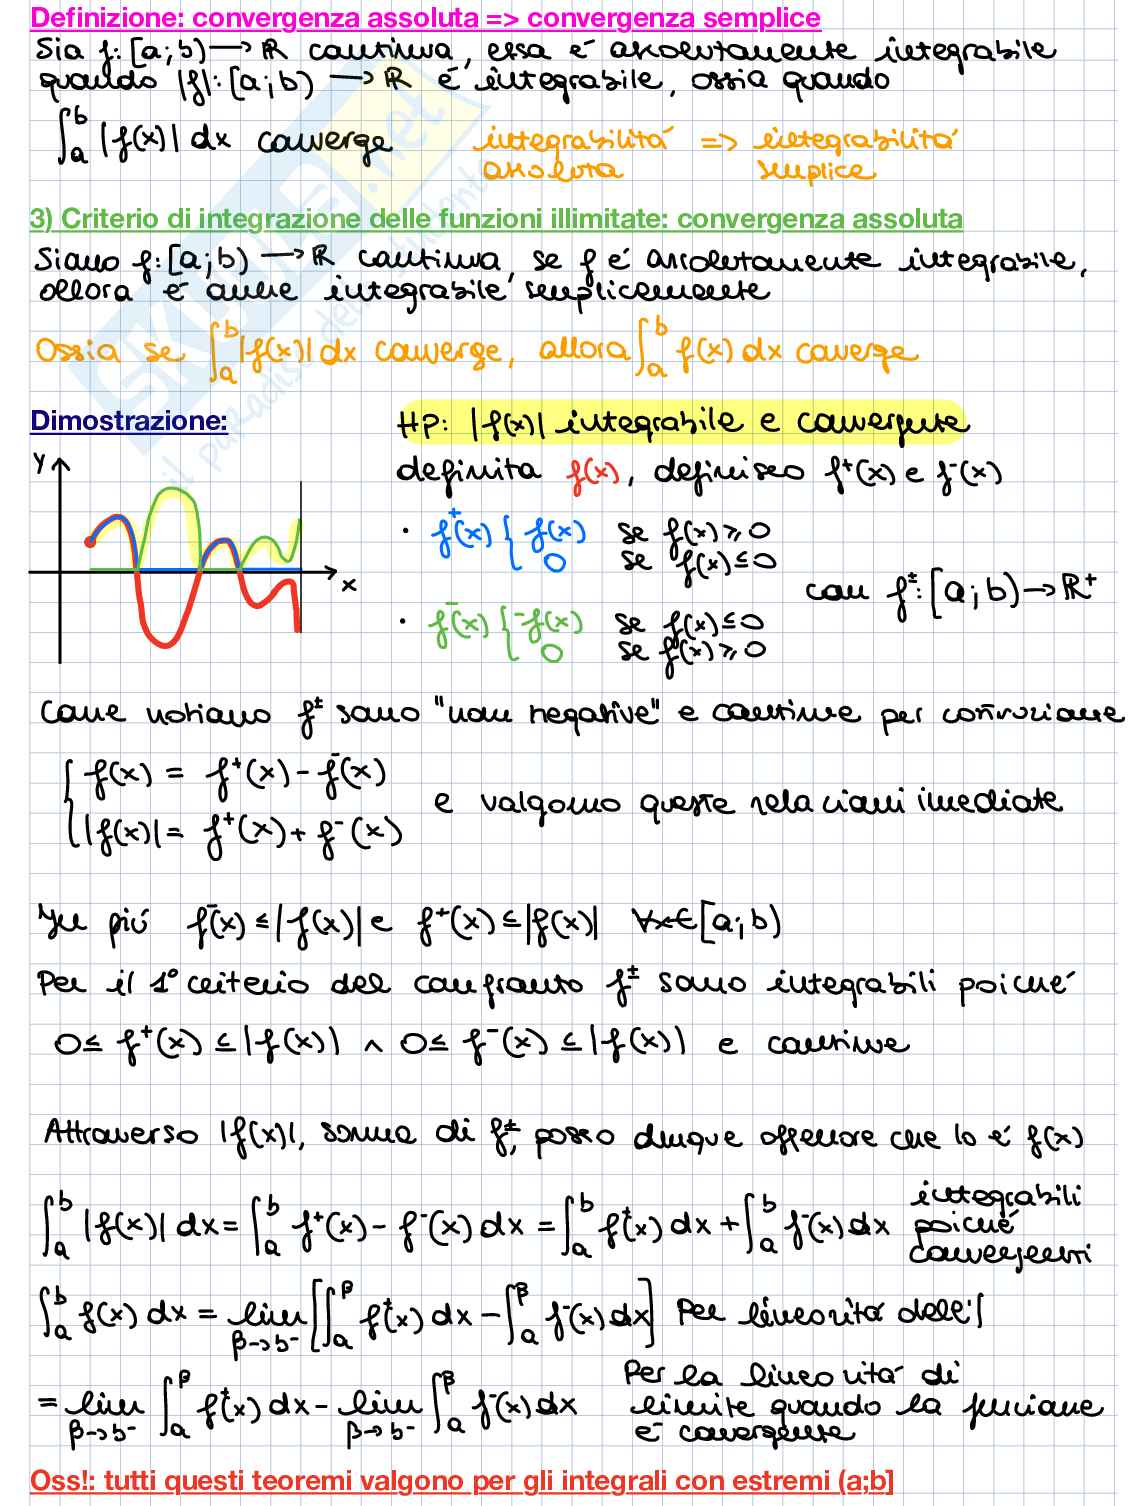 Definizione: convergenza assoluta => convergenza semplice
Sia f: [a;b) → ℝ continua, essa é assolutamente integrabile
quando |f|: [a;b) → ℝ é integrabile, ossia quando
∫_a^b |f(x)| dx converge
integrabilitá => integrabilitá
assoluta semplice
3) Criterio di integrazione delle funzioni illimitate: convergenza assoluta
Siano f: [a;b) → ℝ continua, se f é assolutamente integrabile,
allora é anche integrabile semplicemente
Ossia se ∫_a^b |f(x)| dx converge, allora ∫_a^b f(x) dx converge
Dimostrazione:
Hp: |f(x)| integrabile e convergente
definita f(x), definisco f⁺(x) e f⁻(x)
y
x
• f⁺(x) { f(x) se f(x) ≥ 0
0 se f(x) ≤ 0
con f^±: [a;b) → ℝ⁺
• f⁻(x) { -f(x) se f(x) ≤ 0
0 se f(x) ≥ 0
Come notiamo f^± sono "non negative" e continue per costruzione
{ f(x) = f⁺(x) - f⁻(x)
|f(x)| = f⁺(x) + f⁻(x)
e valgono queste relazioni imediate
In piú f⁻(x) ≤ |f(x)| e f⁺(x) ≤ |f(x)| ∀x∈[a;b)
Per il 1° criterio del confronto f^± sono integrabili poiché
0 ≤ f⁺(x) ≤ |f(x)| ∧ 0 ≤ f⁻(x) ≤ |f(x)| e continue
Attraverso |f(x)|, somma di f^±, posso dunque affermare che lo é f(x)
∫_a^b |f(x)| dx = ∫_a^b f⁺(x) - f⁻(x) dx = ∫_a^b f⁺(x) dx + ∫_a^b f⁻(x) dx
integrabili
poiché
convergenti
∫_a^b f(x) dx = lim_{β→b⁻} [∫_a^β f⁺(x) dx - ∫_a^β f⁻(x) dx] Per linearitá dell'∫
= lim_{β→b⁻} ∫_a^β f⁺(x) dx - lim_{β→b⁻} ∫_a^β f⁻(x) dx
Per la linearitá di
limite quando la funzione
é convergente
Oss!: tutti questi teoremi valgono per gli integrali con estremi (a;b]